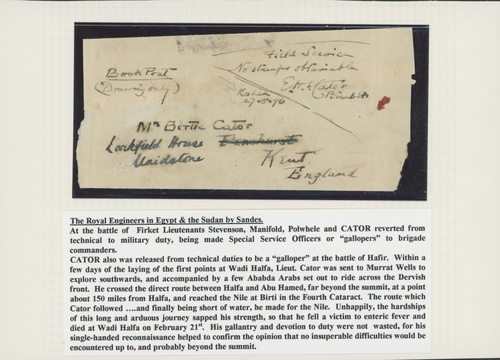 Field Service
No stamps obtainable
Book Post
(Drawing only)
Kosheh
27.8.96
Mrs Bertie Cator
Larkfield House
Penshurst
Maidstone
Kent
England
The Royal Engineers in Egypt & the Sudan by Sandes.
At the battle of Firket Lieutenants Stevenson, Manifold, Polwhele and CATOR reverted from
technical to military duty, being made Special Service Officers or “gallopers” to brigade
commanders.
CATOR also was released from technical duties to be a “galloper” at the battle of Hafir. Within a
few days of the laying of the first points at Wadi Halfa, Lieut. Cator was sent to Murrat Wells to
explore southwards, and accompanied by a few Ababda Arabs set out to ride across the Dervish
front. He crossed the direct route between Halfa and Abu Hamed, far beyond the summit, at a point
about 150 miles from Halfa, and reached the Nile at Birti in the Fourth Cataract. The route which
Cator followed ….and finally being short of water, he made for the Nile. Unhappily, the hardships
of this long and arduous journey sapped his strength, so that he fell a victim to enteric fever and
died at Wadi Halfa on February 21st. His gallantry and devotion to duty were not wasted, for his
single-handed reconnaissance helped to confirm the opinion that no insuperable difficulties would be
encountered up to, and probably beyond the summit.